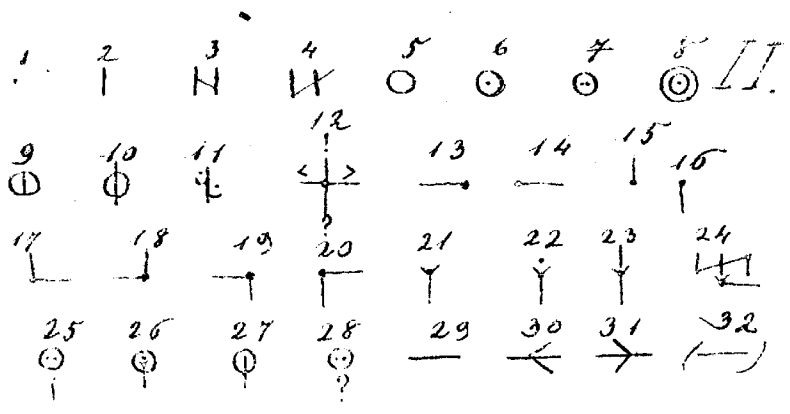 1 2 3 4 5 6 7 8 II.
9 10 11 12 13 14 15 16
17 18 19 20 21 22 23 24
25 26 27 28 29 30 31 32